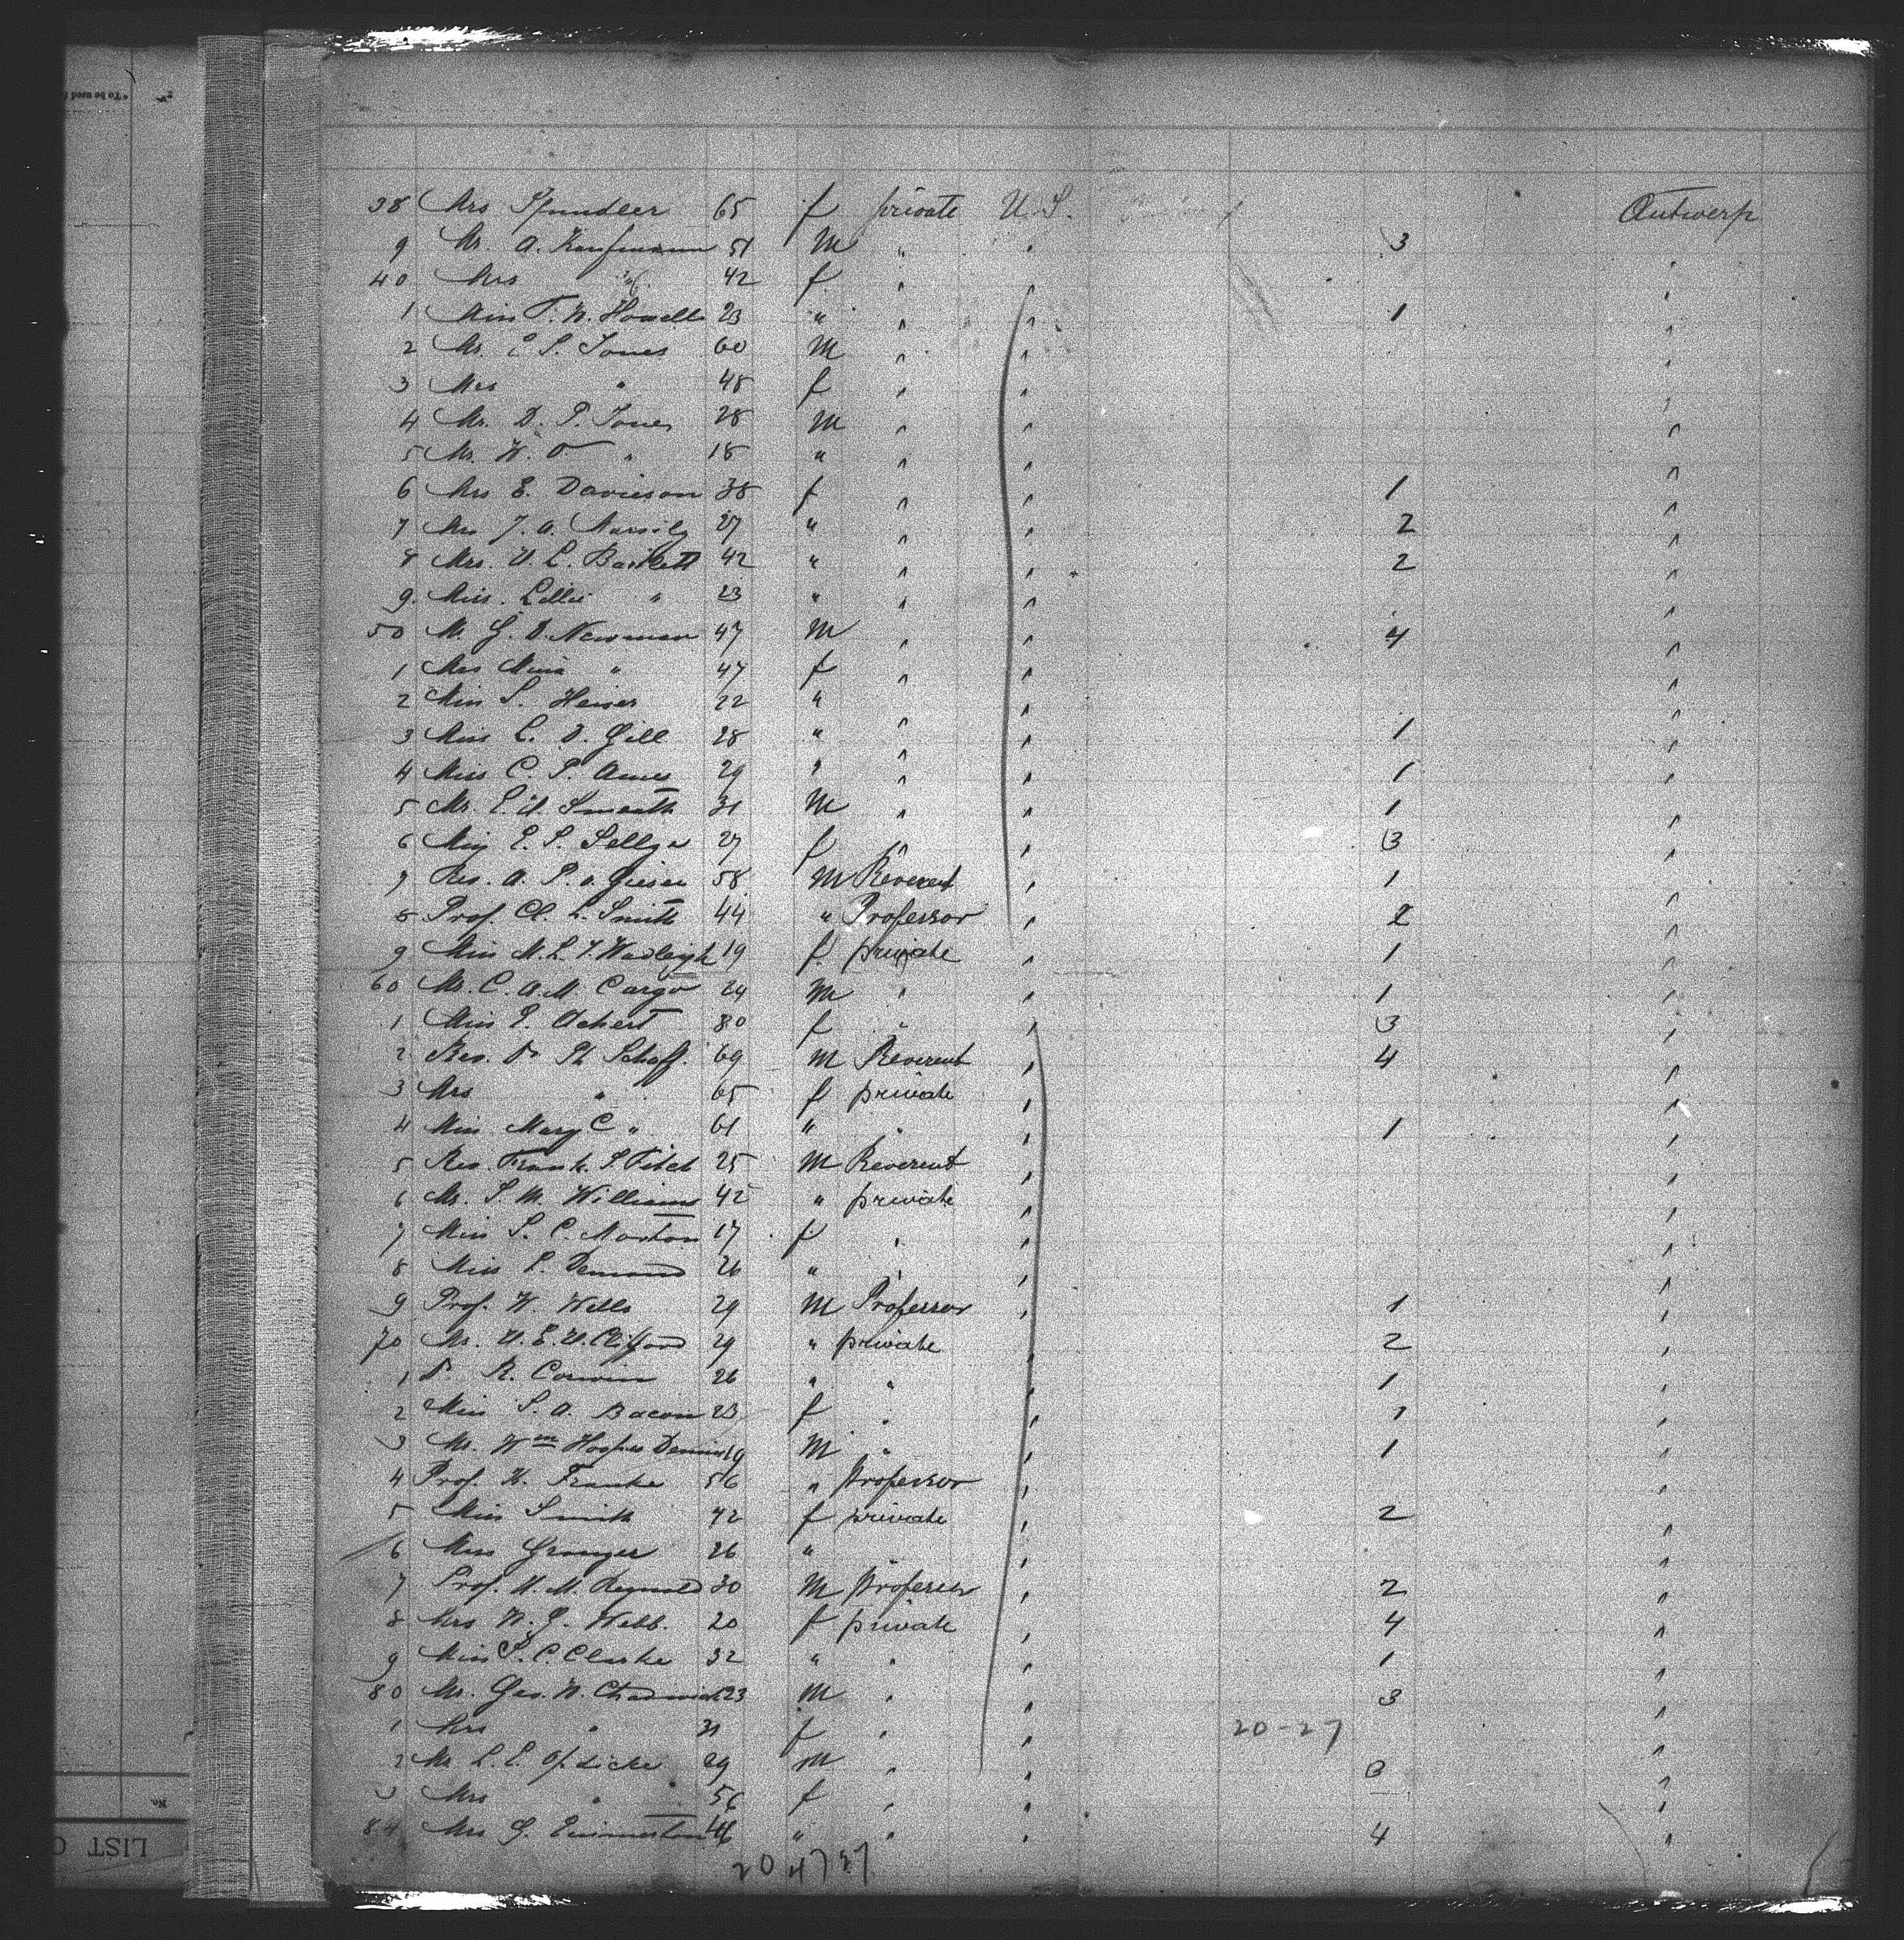 *To be used
38 Mrs Spindler 65 f private U.S. Antwerp
9 Mr. A. Kaufmann 51 M " " 3 "
40 Mrs " 42 f " " "
1 Miss T. W. Howell 23 " " " 1 "
2 Mr. E S. Jones 60 M " " "
3 Mrs " 48 f " " "
4 Mr. D. P. Jones 28 M " " "
5 Mr. W. O " 18 " " " "
6 Mrs E. Davieson 38 f " " 1 "
7 Mrs J. A. Marsily 27 " " " 2 "
8 Mrs. H. L. Bartlett 42 " " " 2 "
9. Miss. Lillie " 23 " " " "
50 M. G. D. Newman 47 M " " 4 "
1 Mrs Mina " 47 f " " "
2 Miss S. Heiser 22 " " "
3 Miss L. D. Gill 28 " " " 1 "
4 Miss C. P. Ames 29 " " " 1 "
5 Mr. E. H. Smeeth 31 M " " 1 "
6 Miss E. S. 27 f " " 3 "
7 Rev. A. P. v. Giesen 58 M Reverent " 1 "
8 Prof. Cl. L. Smith 44 " Professor " 2 "
9 Miss M. L. F. Wadleigh 19 f. private " 1 "
60 Mr. C. A. M. Cargo 24 M " " 1 "
1 Miss E. Achert 80 f " " 3 "
2 Rev. Dr Ph Schaff. 69 M Reverent " 4 "
3 Mrs " 65 f private " "
4 Miss Mary C " 61 " " " 1 "
5 Rev. Frank. S. Fitch 25 M Reverent " "
6 Mr. S. M. Williams 42 " private " "
7 Miss S. C. Morton 17 f " " "
8 Miss L. Demond 26 " " " "
9 Prof. W. Wells 29 M Professor " 1 "
70 Mr. H. E. W. Clifford 29 " private " 2 "
1 Dr. R. Corwin 26 " " " 1 "
2 Miss S. A. Bacon 23 f " " 1 "
3 Mr. Wm Hooper Dennis 19 M " " 1 "
4 Prof. K. Francke 56 " Professor " "
5 Miss Smith 42 f private " 2 "
6 Miss Granger 26 " " "
7 Prof. H. M. Reynolds 30 M Professor " 2 "
8 Mrs W. G. Webb. 20 f private " 4 "
9 Miss S. C. Clarke 32 " " " 1 "
80 Mr. Geo. W. Chadwick 23 M " " 3 "
1 Mrs " 31 f " " 20-27 "
2 Mr L. E. Opdicke 29 M " " 3 "
3 Mrs " 56 f " " "
84 Mrs G. Emmerton 46 " " " 4 "
20 47 27
No.
LIST O